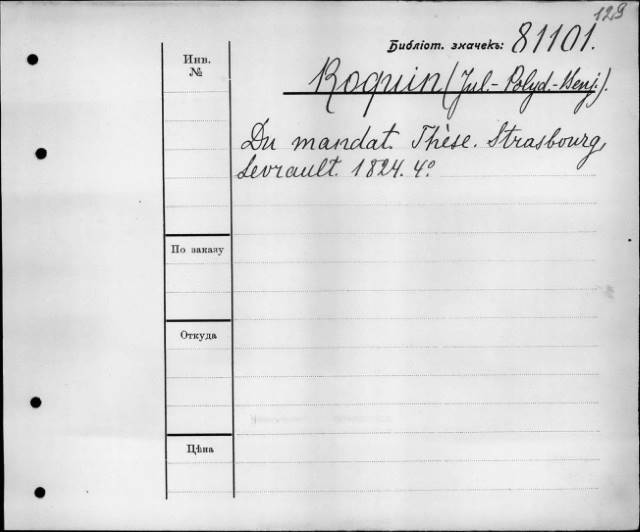 129
Библіот. значекъ: 81101.
Инв. №
Roquin (Jul.-Polyd.-Benj.).
Du mandat. Thèse. Strasbourg,
Levrault. 1824. 4°
По заказу
Откуда
Цѣна